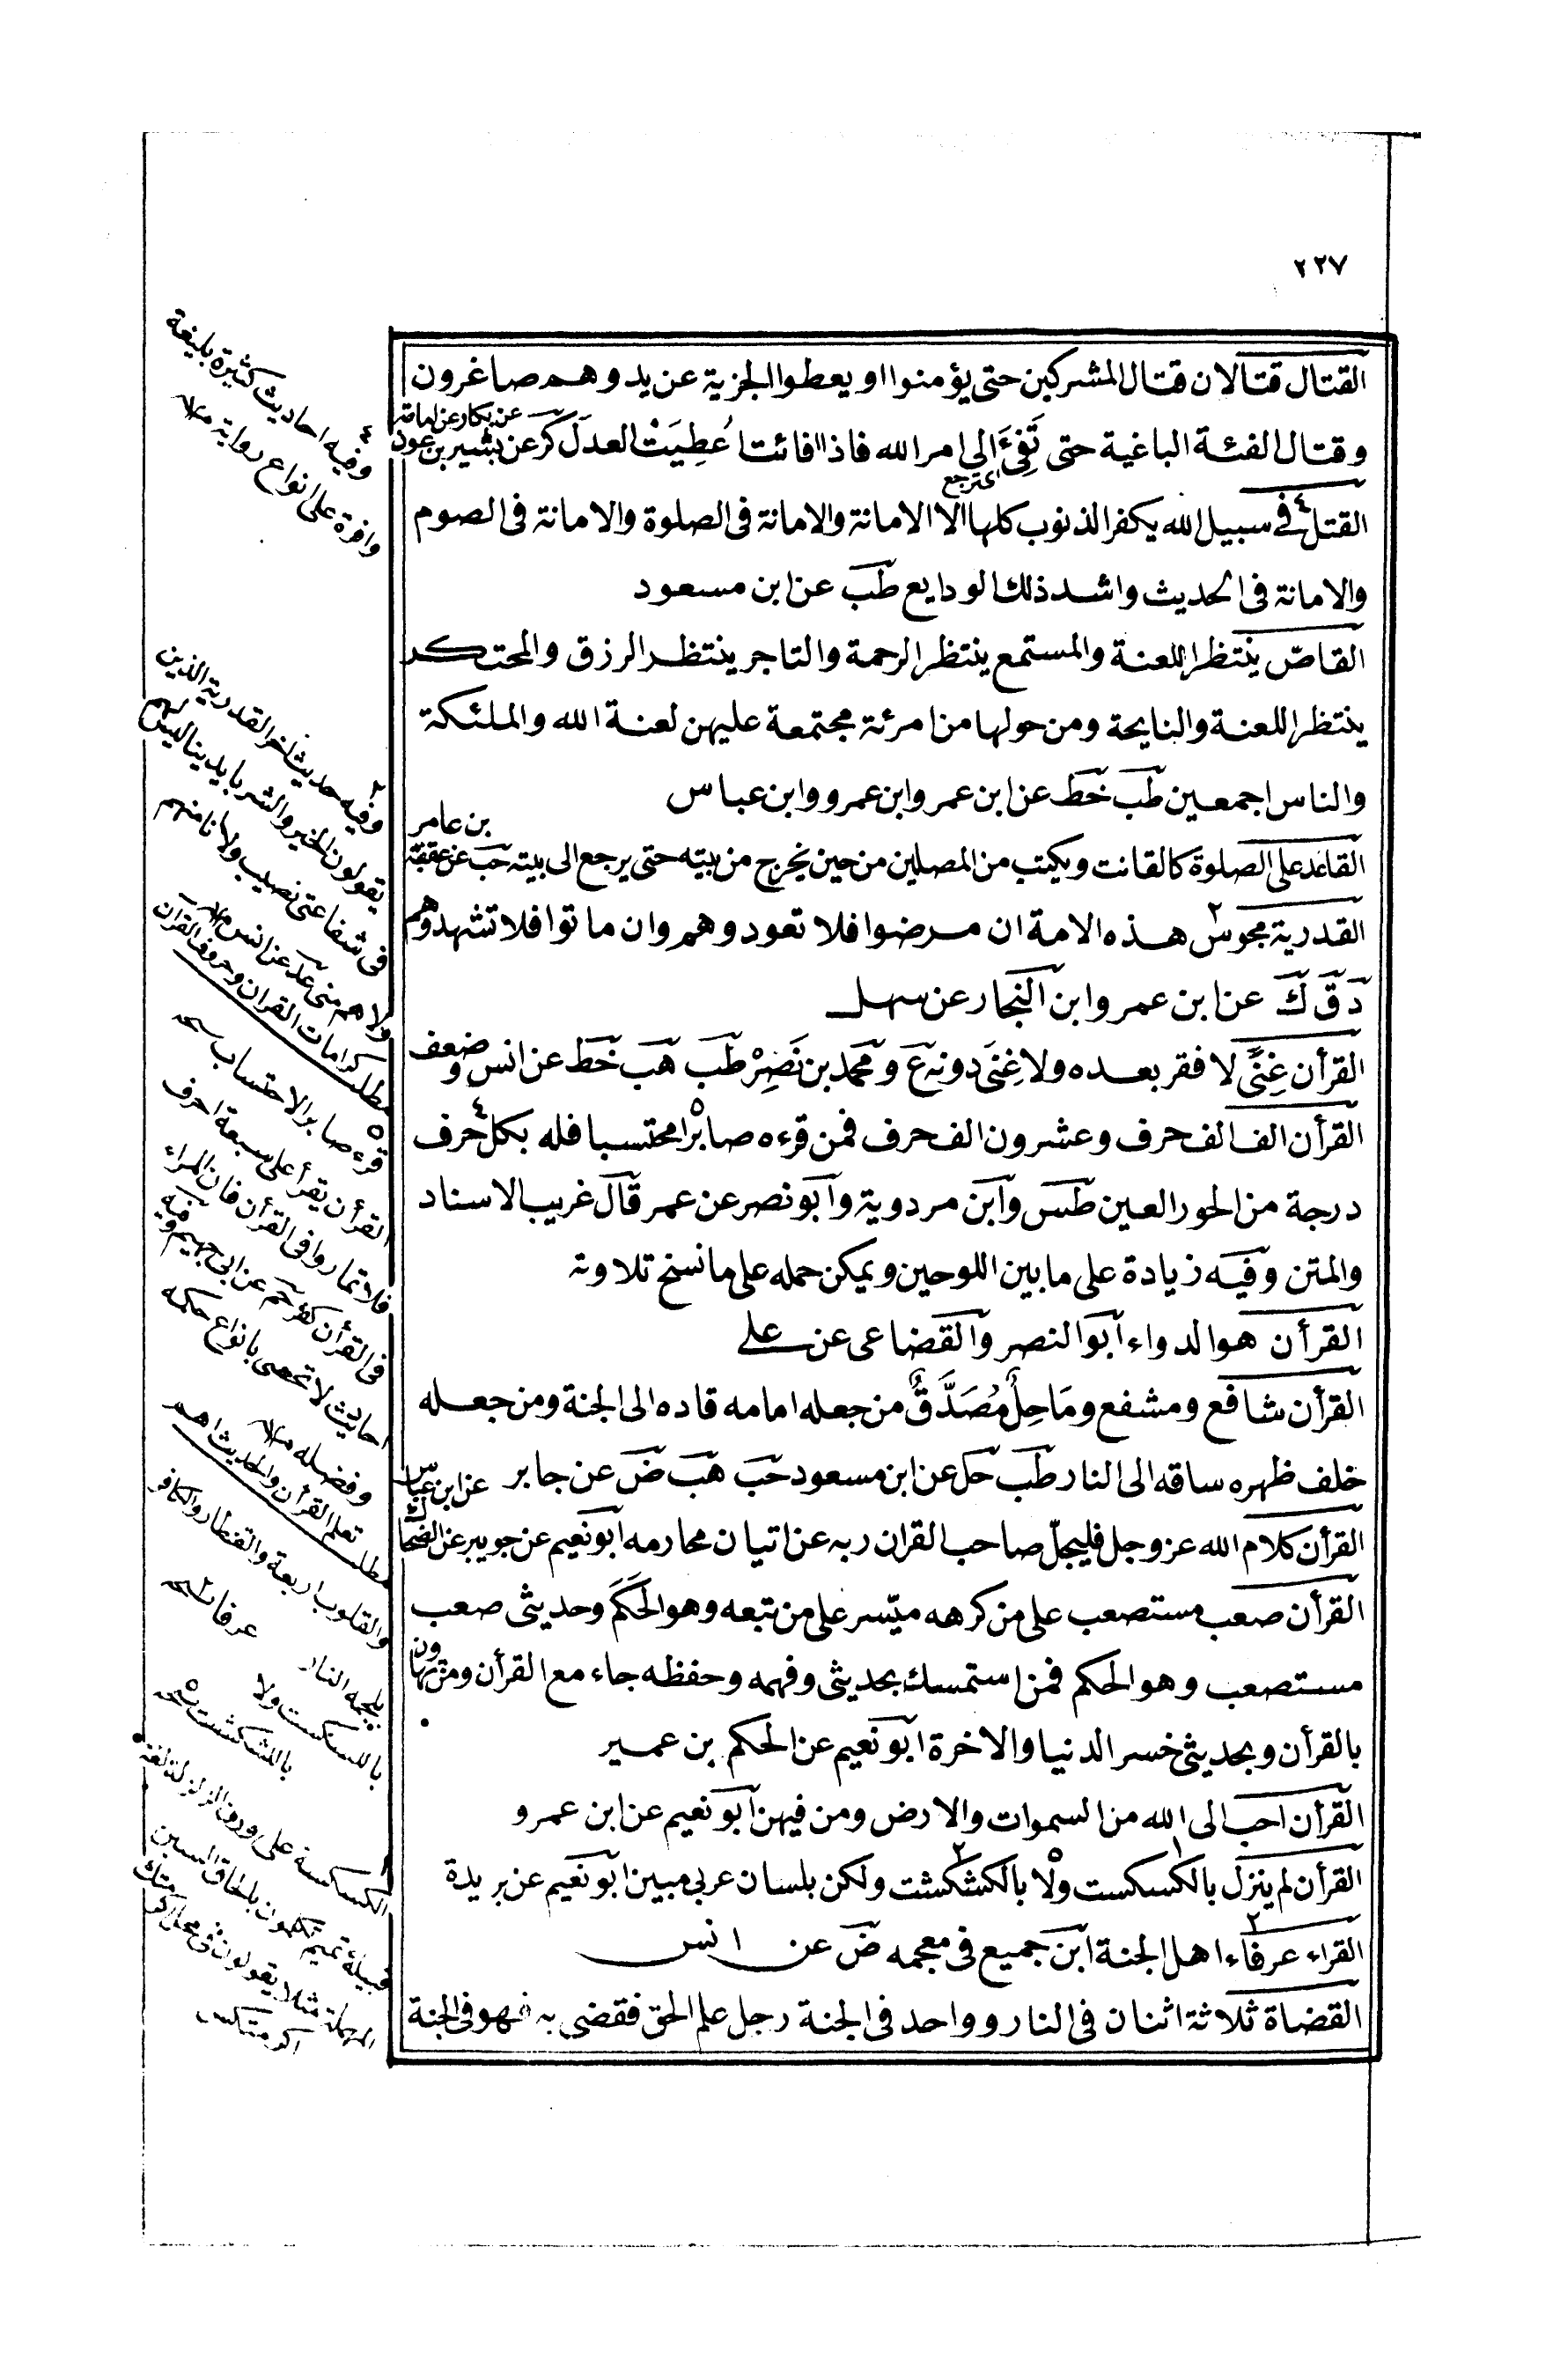 ٢٢٧
القتال قتالان قتال المشركين حتى يؤمنوا او يعطوا الجزية عن يد وهم صاغرون
وقتال الفئة الباغية حتى تَفِئَ الى امر الله فاذا فائتا أُعطِيَتْ العدلَ كر عن بشير بن عون
عن بكار عن امامة
اى ترجع
القتل في سبيل الله يكفر الذنوب كلها الا الامانة والامانة فى الصلوة والامانة فى الصوم
والامانة فى الحديث واشد ذلك الودايع طب عن ابن مسعود
القاصّ ينتظر اللعنة والمستمع ينتظر الرحمة والتاجر ينتظر الرزق والمحتكر
ينتظر اللعنة والنايحة ومن حولها من امرئة مجتمعة عليهن لعنة الله والملئكة
والناس اجمعين طب خط عن ابن عمر وابن عمرو وابن عباس
بن عامر
القاعد على الصلوة كالقانت ويكتب من المصلين من حين يخرج من بيته حتى يرجع الى بيته حب عن عقبة
القدرية مجوس هذه الامة ان مرضوا فلا تعودوهم وان ماتوا فلا تشهدوهم
د ق ك عن ابن عمر وابن النجار عن سهل
القرأن غِنًى لا فقر بعده ولا غِنَى دونه ع ومحمد بن نَصِرْ طب هب خط عن انس وضعف
القرأن الف الف حرف وعشرون الف حرف فمن قرءه صابرا محتسبا فله بكل حرف
درجة من الحور العين طس وابن مردوية وابو نصر عن عمر قال غريب الاسناد
والمتن وفيه زيادة على ما بين اللوحين ويمكن حمله على ما نسخ تلاوته
القرأن هو الدواء ابو النصر والقضاعى عن على
القرأن شافع ومشفع ومَاحِلٌ مُصَدَّقٌ من جعله امامه قاده الى الجنة ومن جعله
خلف ظهره ساقه الى النار طب حل عن ابن مسعود حب هب ض عن جابر
عن ابن عباس
القرأن كلام الله عز وجل فليجلّ صاحب القران ربه عن اتيان محارمه ابو نعيم عن جويبر عن الضحاك
القرأن صعب مستصعب على من كرهه ميّسر على من تبعه وهو الحَكَمَ وحديثى صعب
مستصعب وهو الحكم فمن استمسك بحديثى وفهمه وحفظه جاء مع القرأن ومن تهاون
بالقرأن وبحديثى خسر الدنيا والاخرة ابو نعيم عن الحكم بن عمير
القرأن احب الى الله من السموات والارض ومن فيهن ابو نعيم عن ابن عمرو
القرأن لم ينزل بالكسكست ولا بالكشكشت ولكن بلسان عربى مبين ابو نعيم عن بريدة
القراء عرفاء اهل الجنة ابن جميع فى معجمه ض عن انس
القضاة ثلاثة اثنان فى النار وواحد فى الجنة رجل علم الحق فقضى به فهو فى الجنة
٤ وفيه احاديث كثيرة بليغة
وافرة على انواع رواية
٢ وفيه حديث اخر القدرية الذين
يقولون الخير والشر بايدينا ليس لهم
فى شفاعتى نصيب ولا انا منهم
ولا هم منى عد عن انس
مطلب كرامات القران وحروف القران
٥ قرءه صابر الاحتساب
القرأن يقرأ على سبعة احرف
فلا تماروا فى القرأن فان المراء
فى القرأن كفر حم عن ابى جهيم وفيه
احاديث لا تحصى بانواع حكمه
وفضله
مطلب تعلم القرأن والحديث اهم
والقلوب اربعة والقنطار والكافر
يلجمه النار
عرفا
باللسكست ولا
باللشكشت
الكسكسة على وزن الزلزلة لغة
قبيلة تميم تكلمون بالحاق السين
المهملة مثلا يقولون فى محل اكرمتك
اكرمتكس